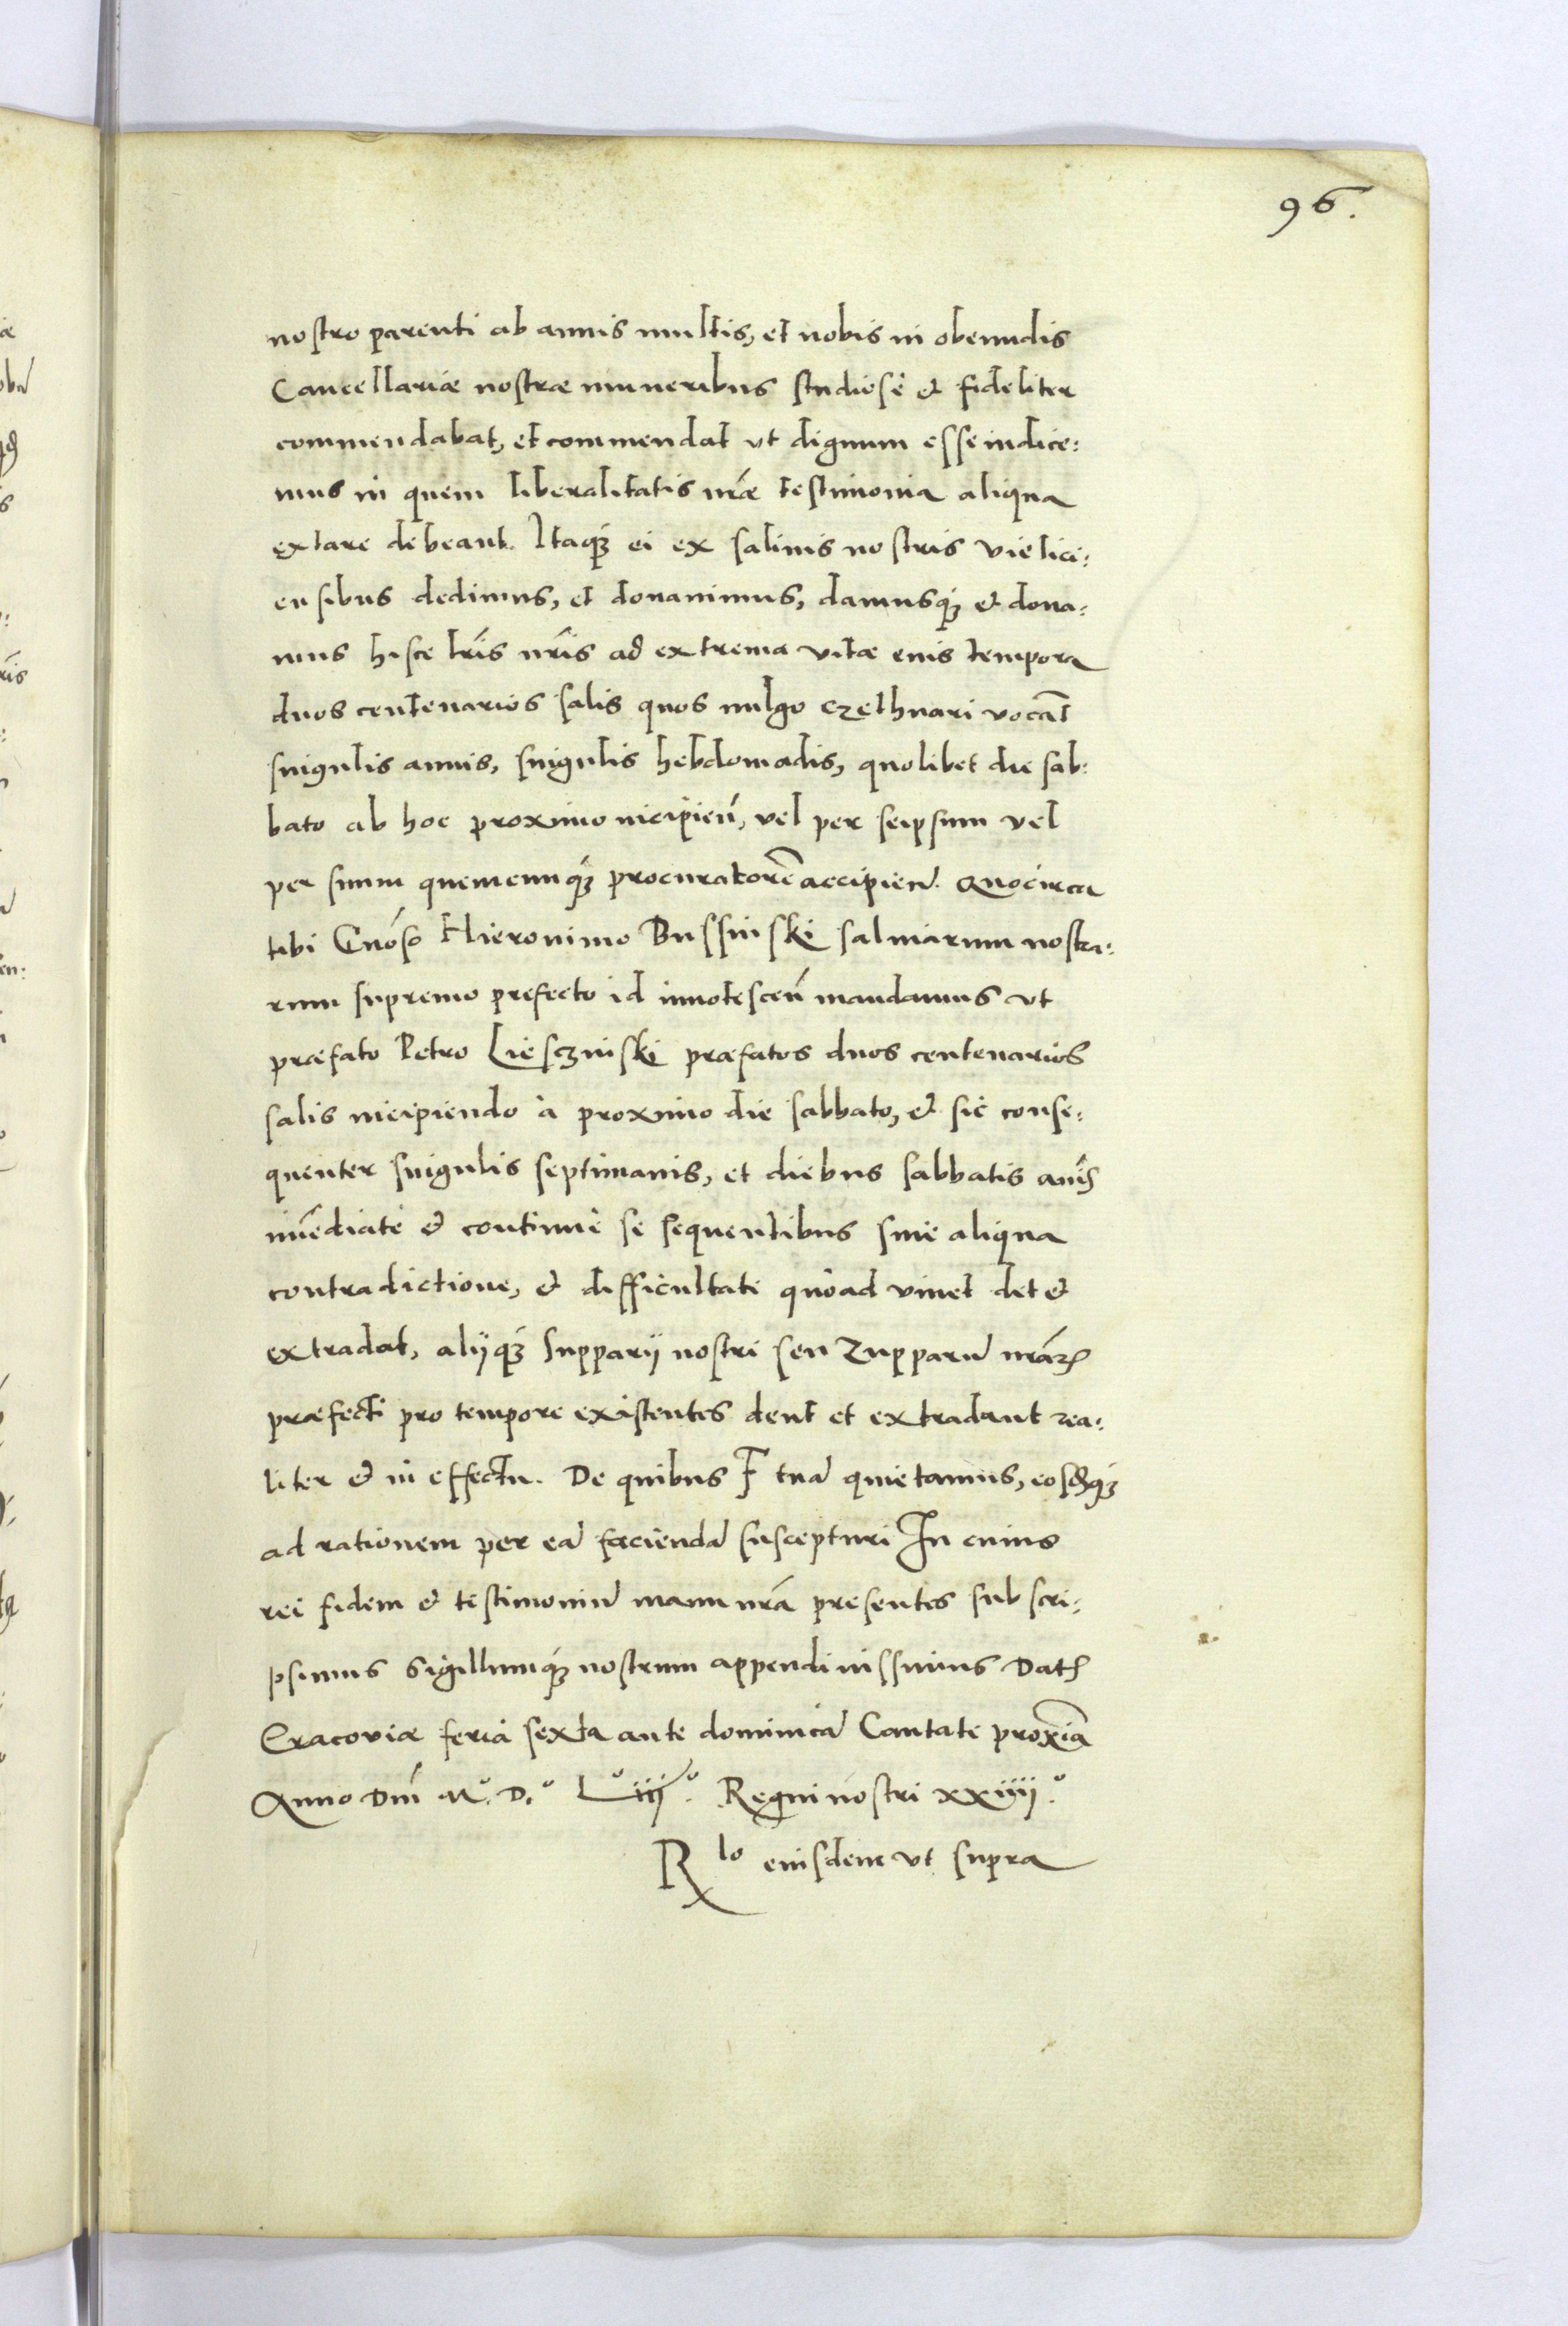 96.
nostro parenti ab annis multis, et nobis in obeundis
Cancellariæ nostræ muneribus studiosè et fideliter
commendabat, et commendat vt dignum esse iudice:
mus in quem liberalitatis nr̃æ testimonia aliqua
extare debeant. Itaq3 ei ex salinis nostris vielici:
ensibus dedimus, et donauimus, damusq3 et dona:
mus hisce lr̃is nr̃is ad extrema vitæ euis tempora
duos centenarios salis quos uulgo czethnari vocãt
singulis annis, singulis hebdomadis, quolibet die sab:
bato ab hoc proximo incipieñ, vel per seipsum vel
per suum quemcunq3 procuratorẽ accipieñ. Quocirca
tibi Gnõso Hieronimo Bussinski salinarum nostra:
rum supremo prefecto id innotesceñ mandamus vt
præfato Petro Liesczinski præfatos duos centenarios
salis incipiendo à proximo die sabbato, et sic conse:
quenter singulis septimanis, et diebus sabbatis
im̃ediatè et continuè se sequentibus sine aliqua
contradictione, et difficultate quoad viuet det et
extradat, alijq3 supparij nostri seu Zupparũ nrãrꝫ
præfecti pro tempore existentes dent et extradant rea:
liter et in effectu. De quibus F tuã quietamus, eosdq3
ad rationem per eã faciendã suscepturi In cuius
rei fidem et testimoniũ manu nrã presentes subscri:
psimus sigillumq3 nostrum appendi iussimus Datꝫ
Cracoviæ feria sexta ante dominicã Cantate proxĩa
Anno Dni̇̃ M.º D.º Lº iiijº. Regni nostri xxiiii.º
Rlo eiusdem vt supra